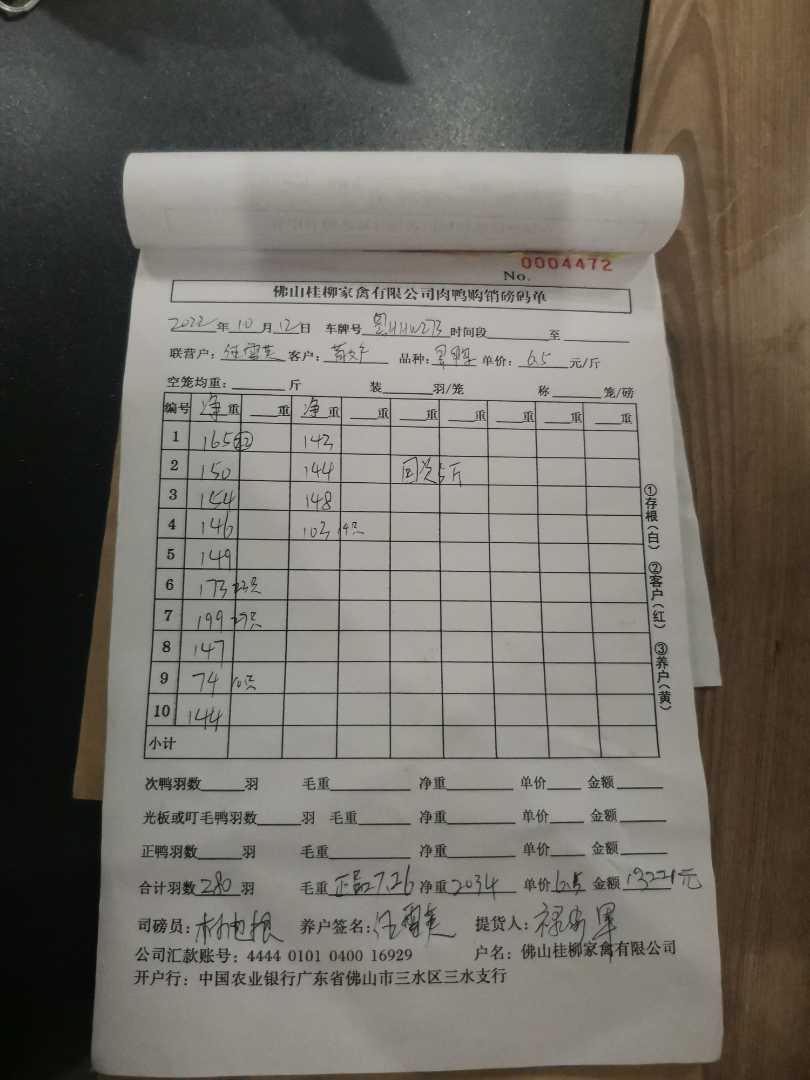 No. 0004472
佛山桂柳家禽有限公司肉鸭购销磅码单
2022年10月12日 车牌号 HHW273 时间段 至
联营户: 任雪芝 客户: 品种: 单价: 6.5 元/斤
空笼均重: 斤 装 羽/笼 称 笼/磅
编号 净重 重 净重 重 重 重 重 重 重
1 165 143
2 150 144 5斤
3 154 148
4 146 103 14只
5 149
6 173 23只
7 199 27只
8 147
9 74 10只
10 144
小计
①存根(白) ②客户(红) ③养户(黄)
次鸭羽数 羽 毛重 净重 单价 金额
光板或叮毛鸭羽数 羽 毛重 净重 单价 金额
正鸭羽数 羽 毛重 净重 单价 金额
合计羽数 280 羽 毛重 正品7.26 净重 2034 单价 6.5 金额 13221元
司磅员: 养户签名: 提货人:
公司汇款账号: 4444 0101 0400 16929 户名: 佛山桂柳家禽有限公司
开户行: 中国农业银行广东省佛山市三水区三水支行